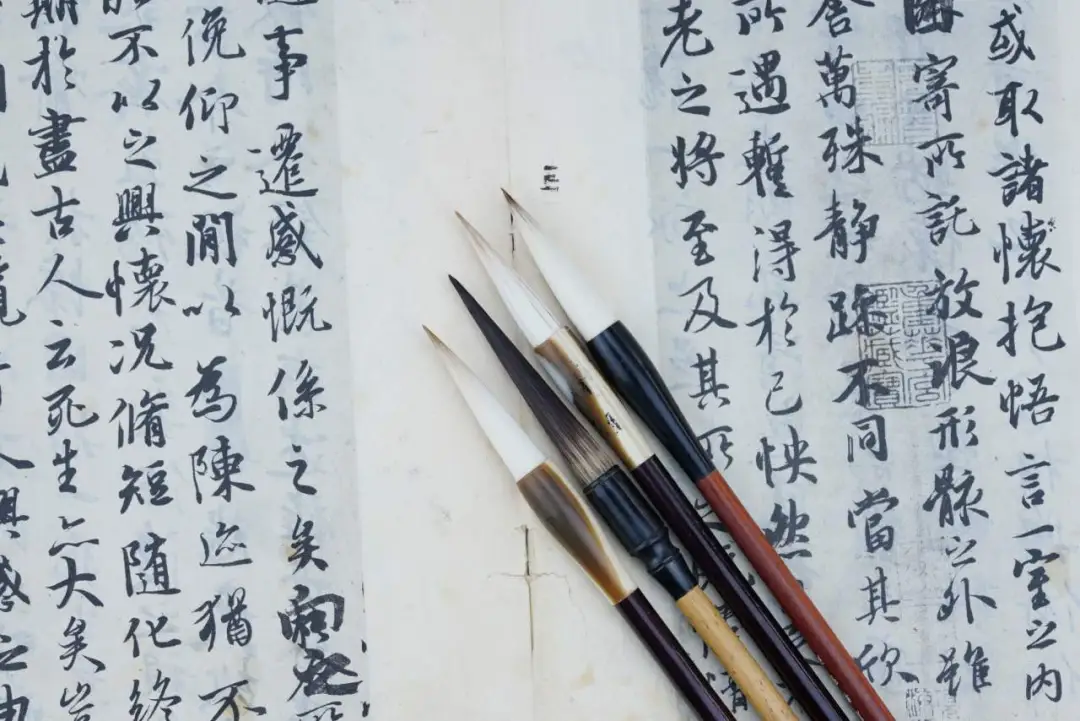 或取諸懷抱悟言一室之內
因寄所託放浪形骸之外雖
舍萬殊静躁不同當其欣
所遇暫得於己怏然
老之將至及其所
事遷感慨係之矣向之所
俛仰之閒以為陳迹猶不
能不以之興懷況脩短随化終
期於盡古人云死生亦大矣豈
人興感之由